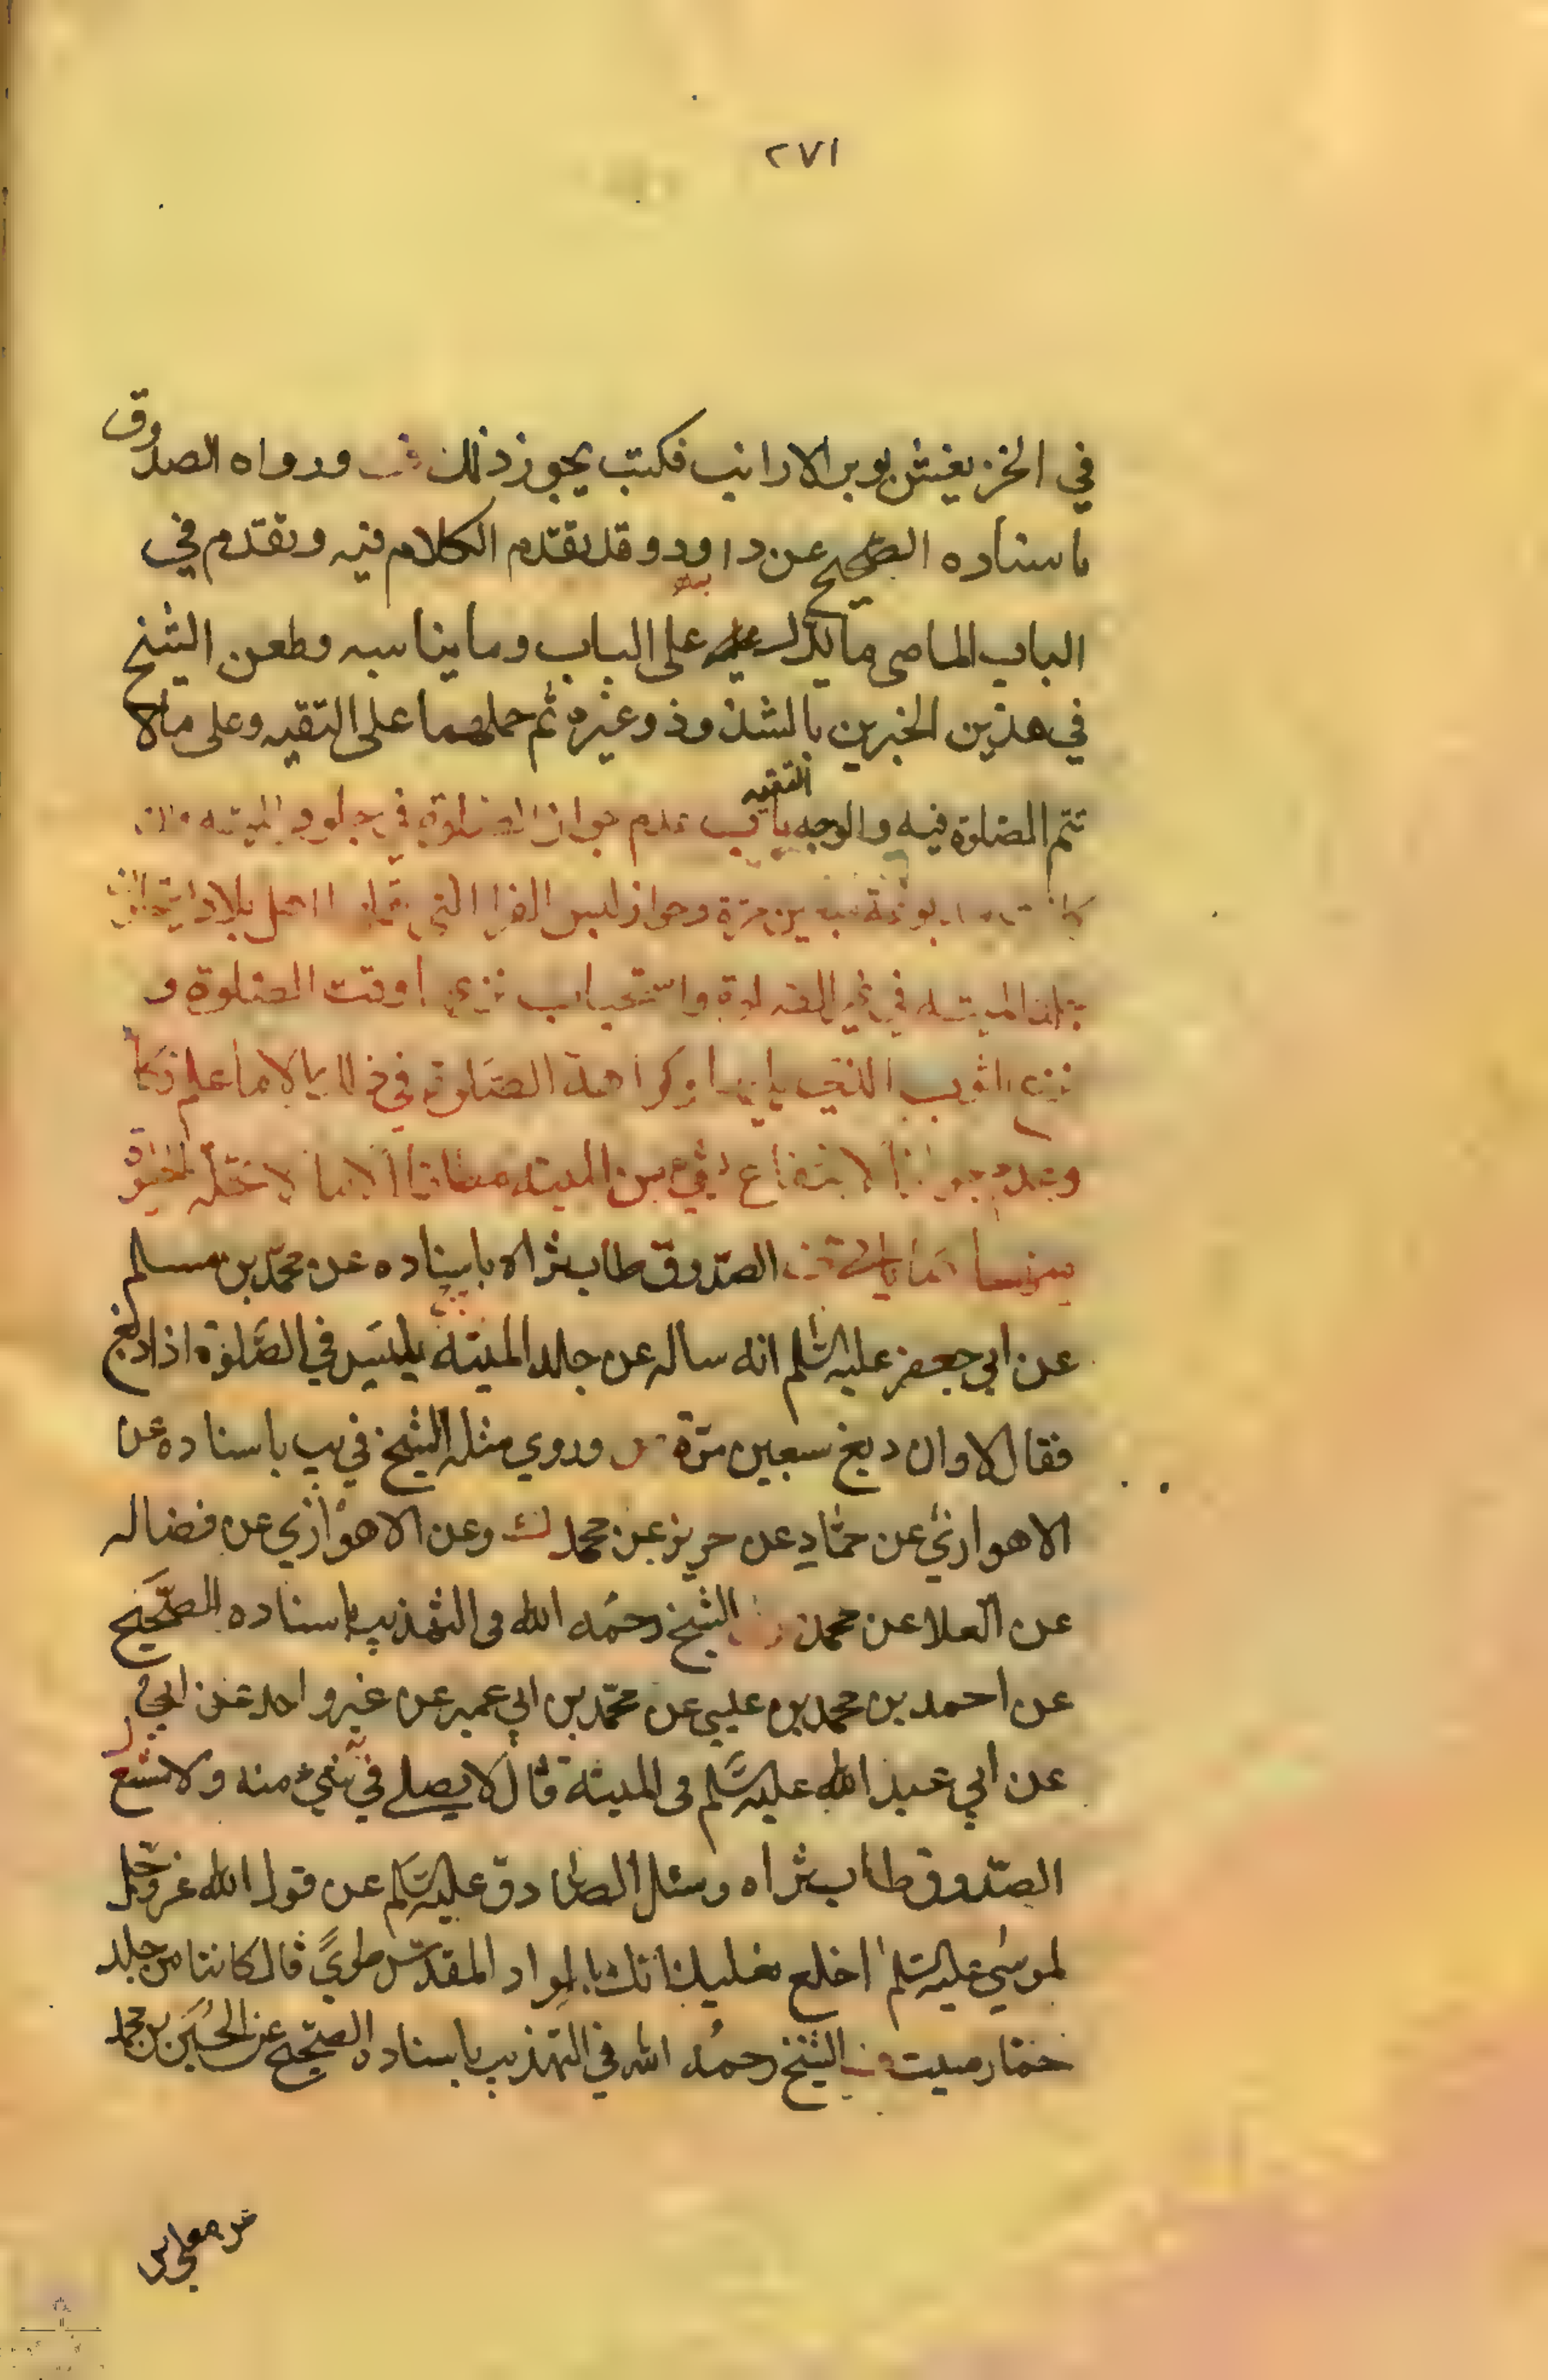 ٢٧١
في الخز يغش بوبر الارانب فكتب يجوز ذلك ورواه الصدوق
باسناده الصحيح عن داود وقد تقدم الكلام فيه وتقدم في
الباب الماضى ما يدل على الباب وما يناسبه وطعن الشيخ
في هذين الخبرين بالشذوذ وغيره ثم حملهما على التقيه وعلى ما لا
تتم الصلوة فيه والوجه التقيه باب عدم جواز الصلوة في جلود الميته وان
كانت مدبوغة سبعين مرة وجواز لبس الفرا التي اهل بلادها
الميته في غير الصلوة واستحباب نزعها وقت الصلوة و
نزع الثوب الذي يليها وكراهة الصلوة في الا ما علم
وعدم جواز الانتفاع بشيء من الميته مطلقا الا ما لا تحله الحيوة
الصدوق طاب ثراه باسناده عن محمد بن مسلم
عن ابي جعفر عليه السلم انه ساله عن جلد الميتة يلبس في الصلوة اذا دبغ
فقال لا وان دبغ سبعين مرة وروي مثله الشيخ في يب باسناده عن
الاهوازي عن حماد عن حريز عن محمد وعن الاهوازي عن فضاله
عن العلا عن محمد الشيخ رحمه الله فى التهذيب باسناده الصحيح
عن احمد بن محمد بن عيسى عن محمد بن ابي عمير عن غير واحد عن ابي
عن ابي عبد الله عليه السلم فى الميتة قال لا يصلے في شيء منه ولا شسع
الصدوق طاب ثراه وسئل الصادق عليه السلم عن قول الله عز وجل
لموسى عليه السلم اخلع نعليك انك بالواد المقدس طوى قال كانتا من جلد
حمار ميت الشيخ رحمه الله في التهذيب باسناده الصحيح عن الحسين بن محمد